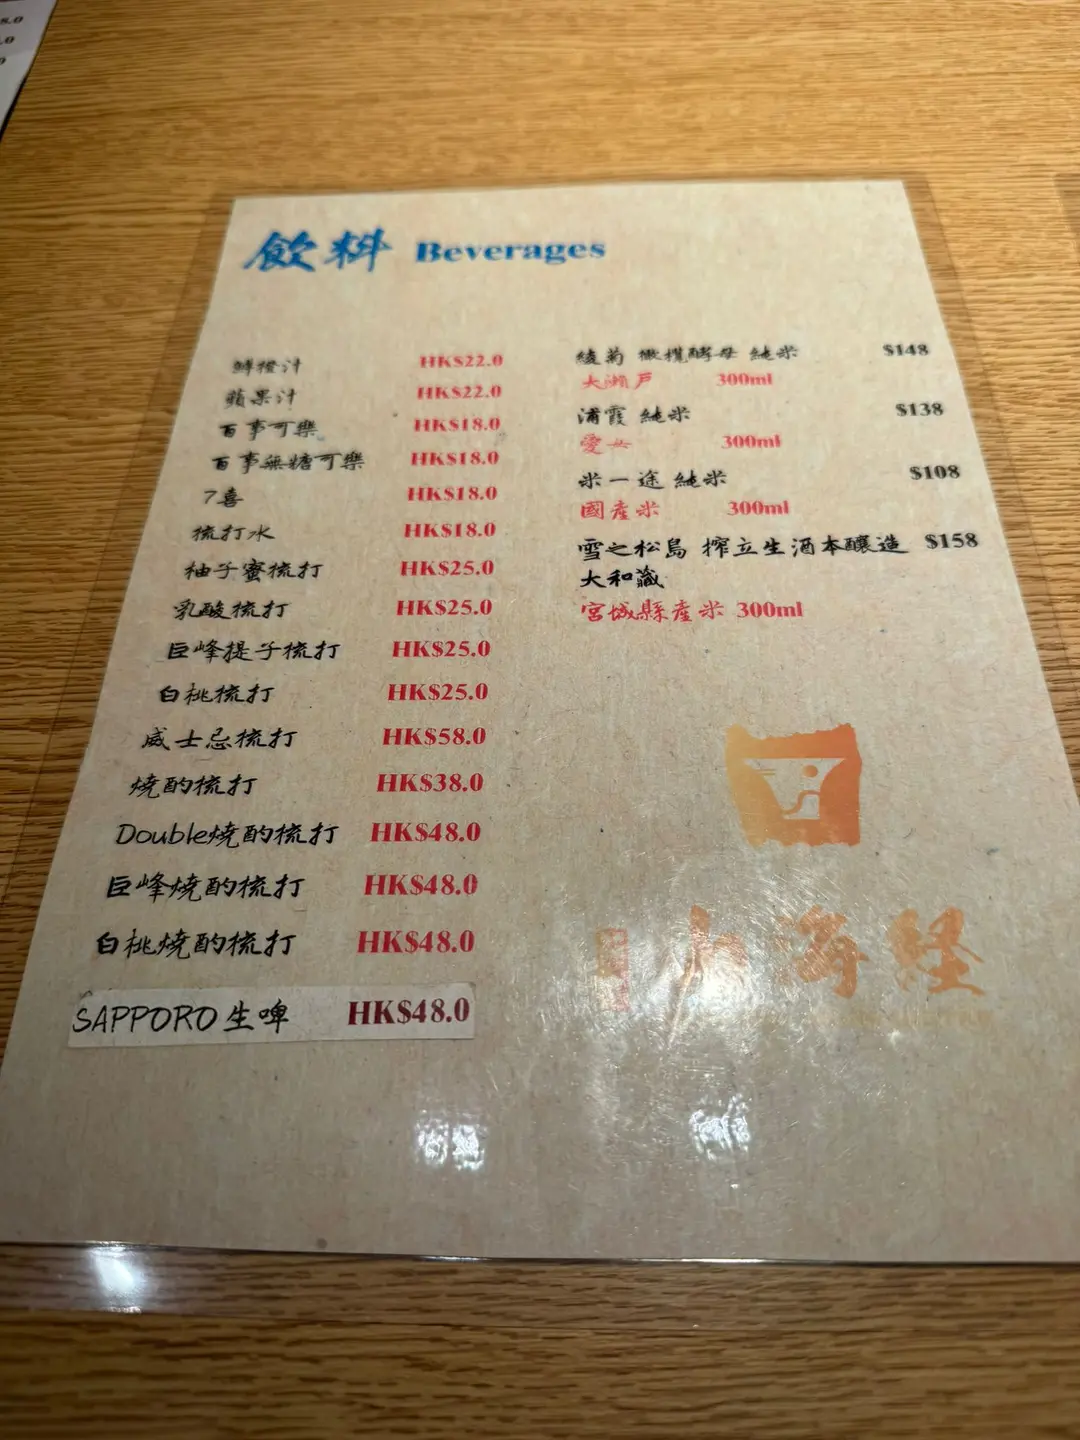 飲料 Beverages
鮮橙汁 HK$22.0
蘋果汁 HK$22.0
百事可樂 HK$18.0
百事無糖可樂 HK$18.0
7喜 HK$18.0
梳打水 HK$18.0
柚子蜜梳打 HK$25.0
乳酸梳打 HK$25.0
巨峰提子梳打 HK$25.0
白桃梳打 HK$25.0
威士忌梳打 HK$58.0
燒酌梳打 HK$38.0
Double燒酌梳打 HK$48.0
巨峰燒酌梳打 HK$48.0
白桃燒酌梳打 HK$48.0
SAPPORO 生啤 HK$48.0
綾菊 橄欖酵母 純米 $148
大瀨戶 300ml
浦霞 純米 $138
愛 300ml
米一途 純米 $108
國產米 300ml
雪之松島 搾立生酒本釀造 $158
大和藏
宮城縣產米 300ml
山海経